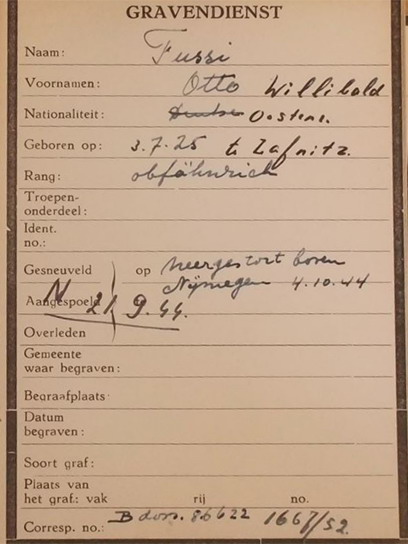 GRAVENDIENST
Naam: Fussi
Voornamen: Otto Willibald
Nationaliteit: Deutse Oostenr.
Geboren op: 3.7.25 te Lafnitz.
Rang: obfähnrich
Troepen-
onderdeel:
Ident.
no.:
Gesneuveld op neergestort boven
Nijmegen 4.10.44
Aangespoeld N 21.9.44.
Overleden
Gemeente
waar begraven:
Begraafplaats:
Datum
begraven:
Soort graf:
Plaats van
het graf: vak rij no.
Corresp. no.: B doss. 86622 1667/52.